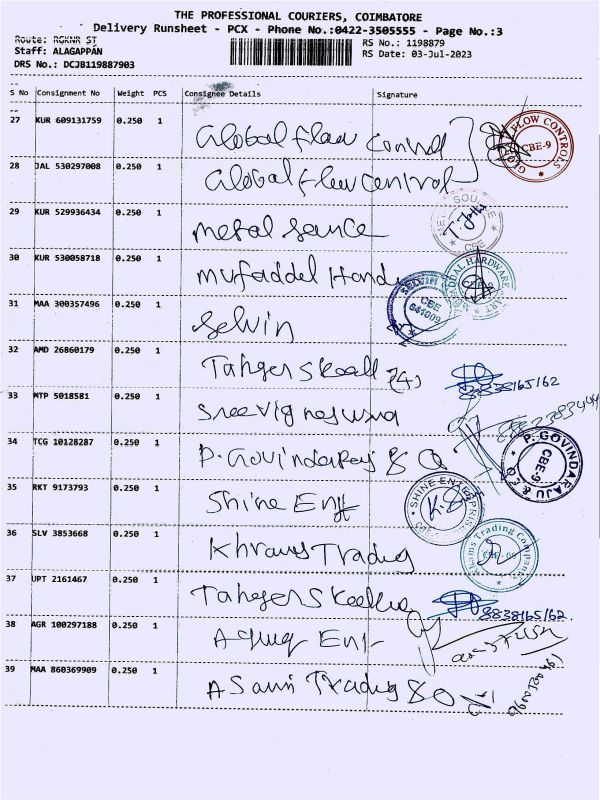 THE PROFESSIONAL COURIERS, COIMBATORE
Delivery Runsheet - PCX - Phone No.:0422-3505555 - Page No.:3
Route: RGKNR ST
RS No.: 1198879
Staff: ALAGAPPAN
RS Date: 03-Jul-2023
DRS No.: DCJB119887903
S No Consignment No Weight PCS Consignee Details Signature
27 KUR 609131759 0.250 1 Global Flow Control
GLOBAL FLOW CONTROLS CBE-9
28 JAL 530297008 0.250 1 Global Flow Control
29 KUR 529936434 0.250 1 Metal Source
CBE
30 KUR 530058718 0.250 1 Mufaddal Hardw
31 MAA 300357496 0.250 1 Selvin
SELVIN CBE 641009
32 AMD 26860179 0.250 1 (4) 8838165162
33 MTP 5018581 0.250 1
34 TCG 10128287 0.250 1 P. Govindaraj & Co
P. GOVINDARAJU & CO CBE-9
35 RKT 9173793 0.250 1 Shine Ent
SHINE ENTERPRISES
36 SLV 3853668 0.250 1 Trading
Khams Trading Company
37 UPT 2161467 0.250 1 8838165162
38 AGR 100297188 0.250 1
39 MAA 860369909 0.250 1 Trading & Co